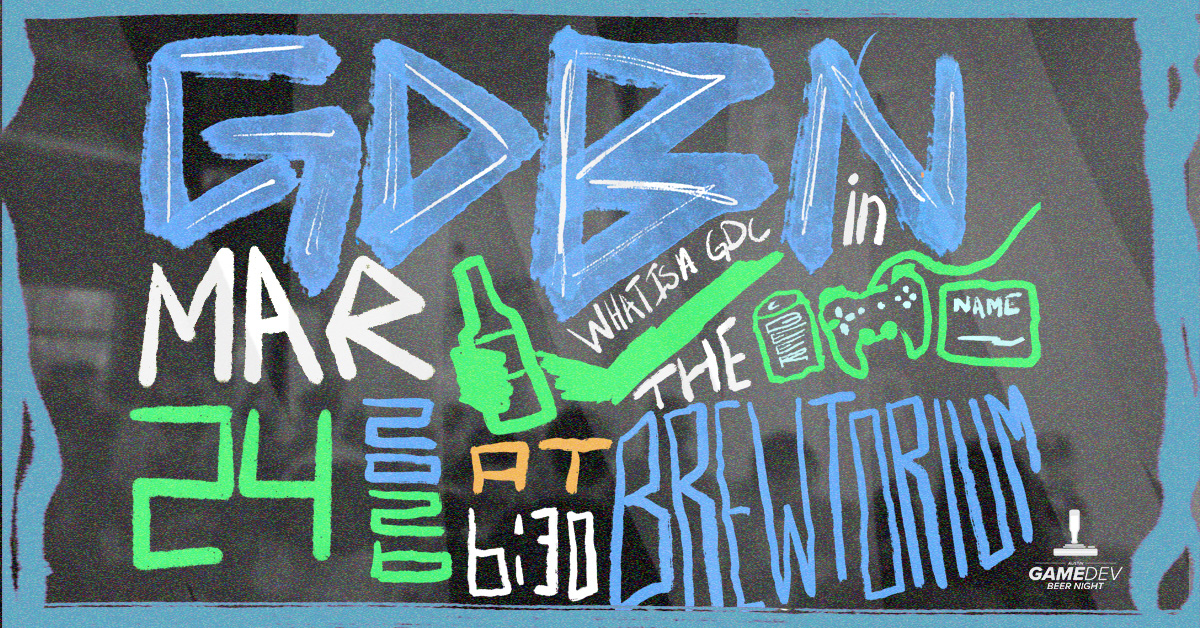 GDBN
in
MAR
WHAT IS A GDC
THE
NAME
24
2020
AT
6:30
BREWTORIUM
AUSTIN
GAMEDEV
BEER NIGHT